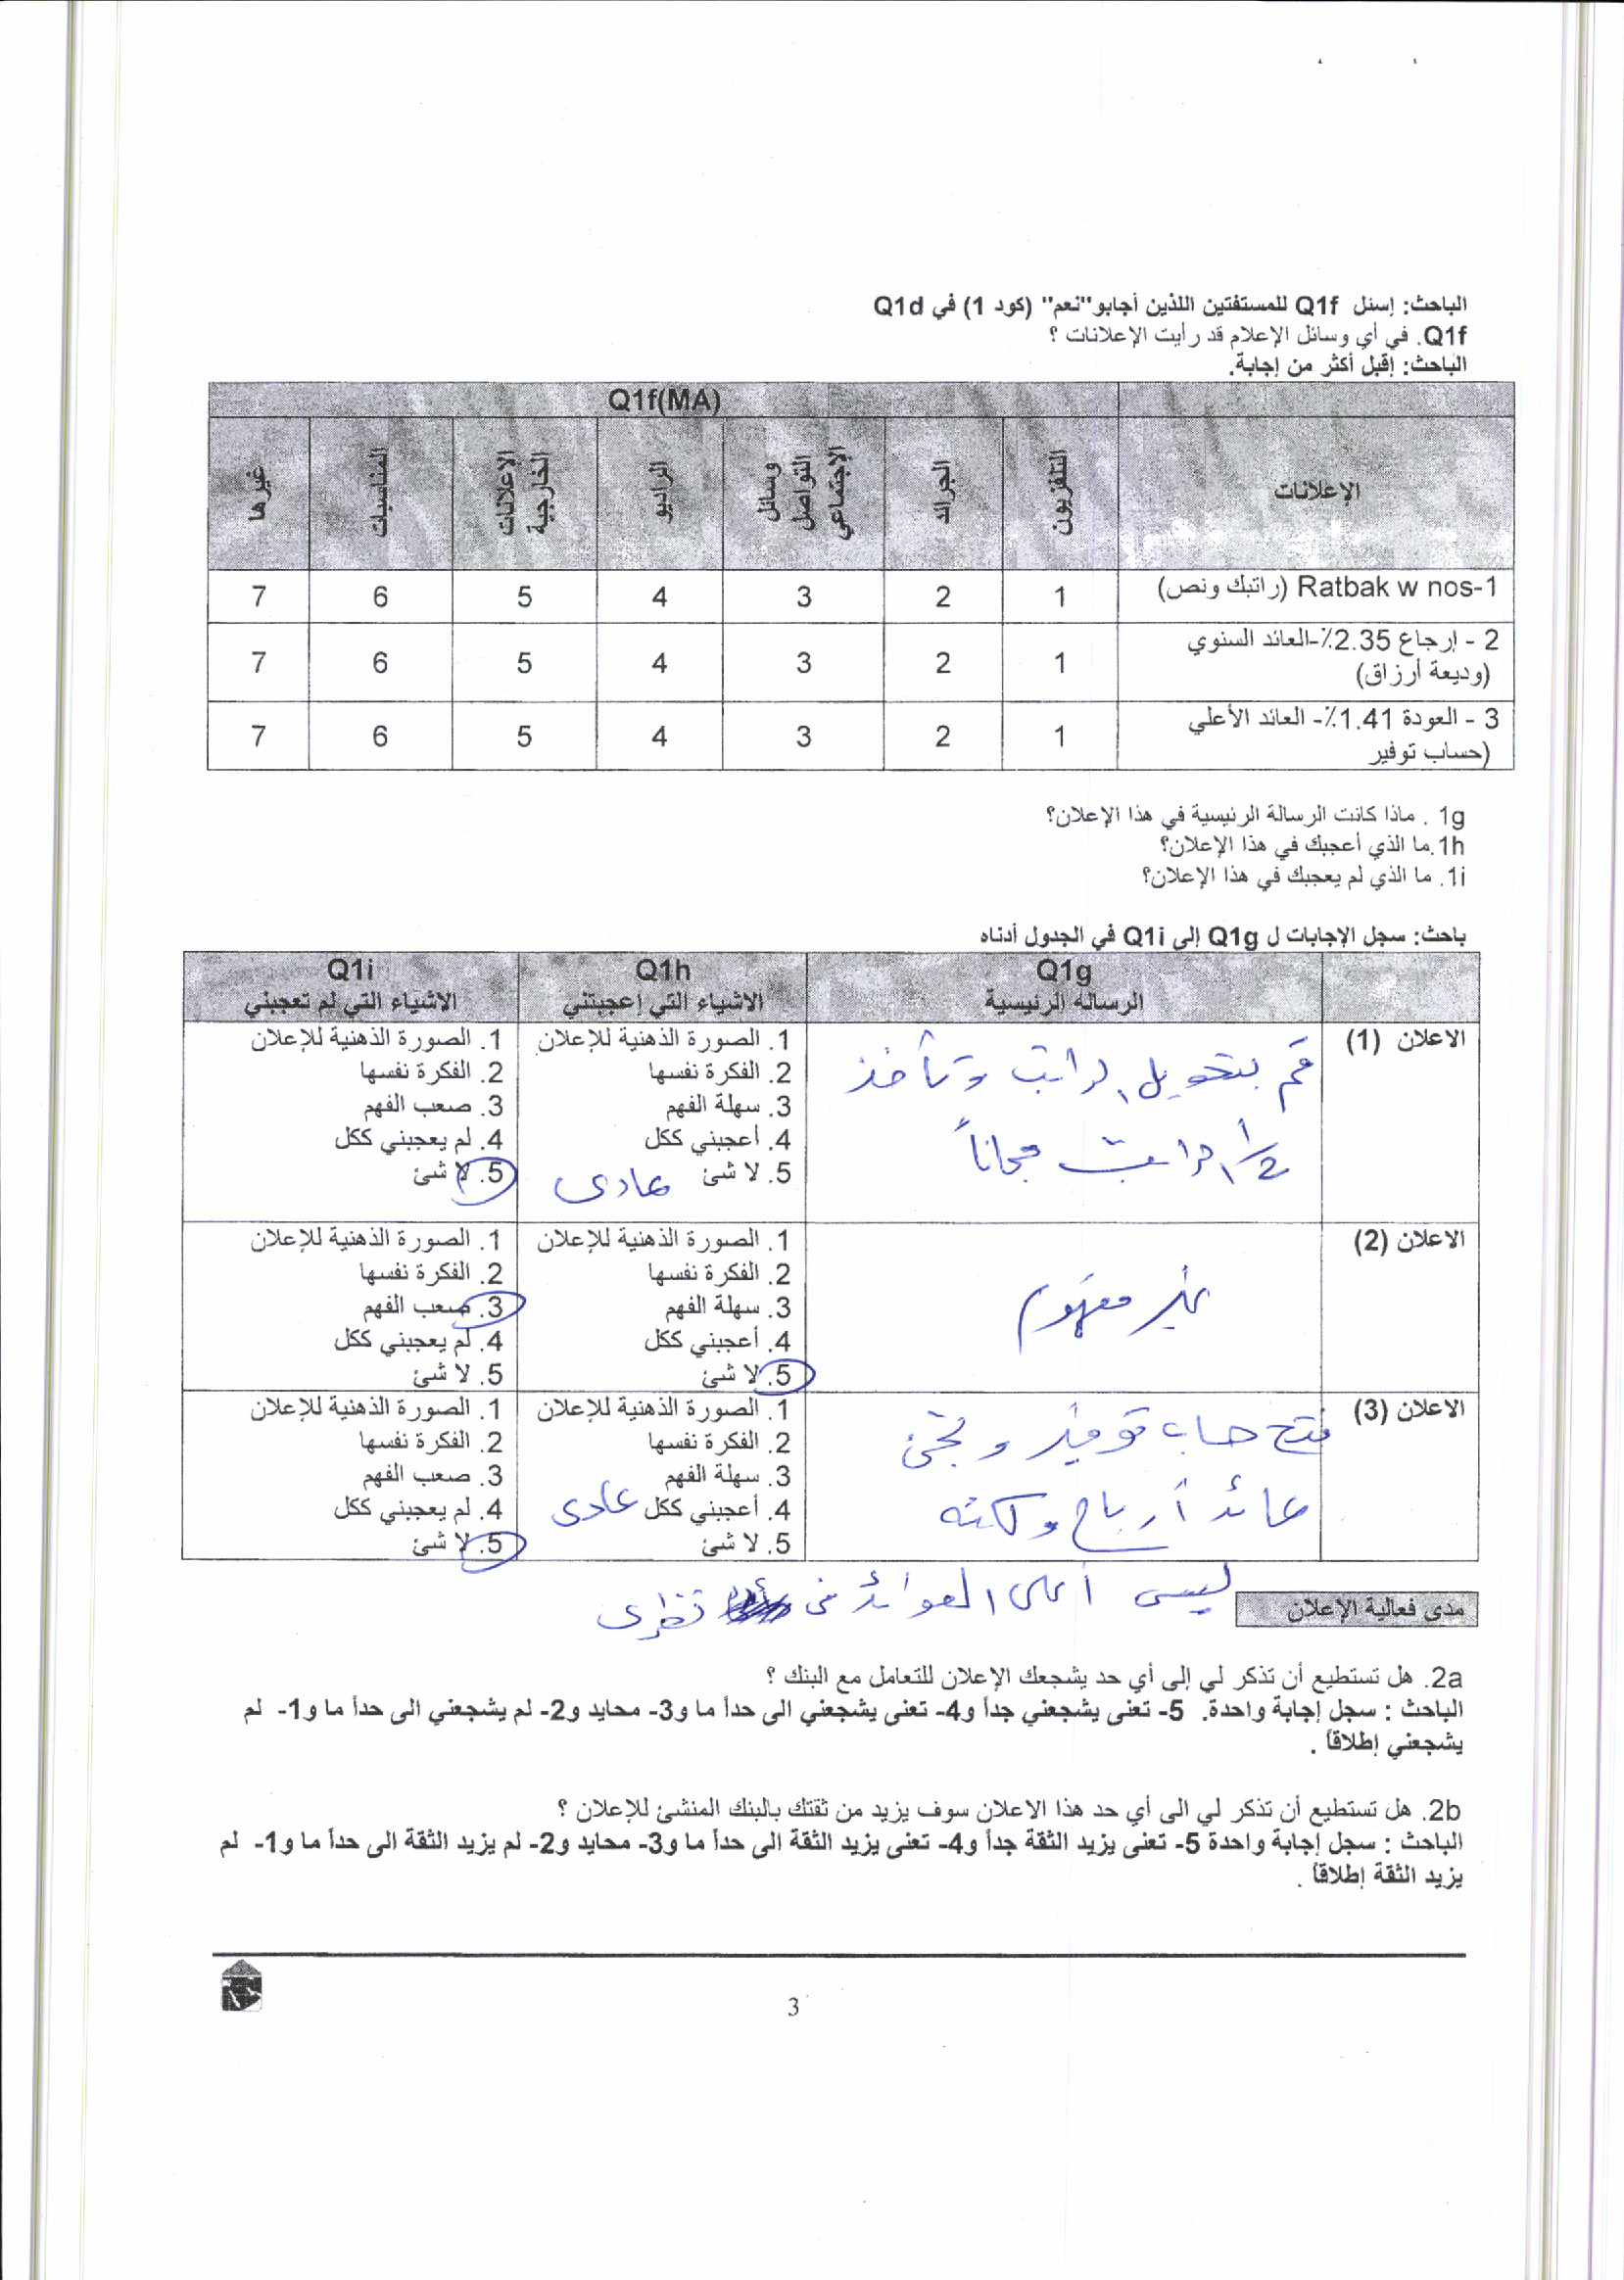 الباحث: إسئل Q1f للمستفتين اللذين أجابو"نعم" (كود 1) في Q1d
Q1f. في أي وسائل الإعلام قد رأيت الإعلانات ؟
الباحث: إقبل أكثر من إجابة.
Q1f(MA)
الإعلانات التلفزيون الجرائد وسائل التواصل الإجتماعي الراديو الإعلانات الخارجية المناسبات غيرها
Ratbak w nos-1 (راتبك ونص) 1 2 3 4 5 6 7
2 - إرجاع 2.35٪-العائد السنوي
(وديعة أرزاق) 1 2 3 4 5 6 7
3 - العودة 1.41٪- العائد الأعلي
(حساب توفير 1 2 3 4 5 6 7
1g . ماذا كانت الرسالة الرئيسية في هذا الإعلان؟
1h.ما الذي أعجبك في هذا الإعلان؟
1i. ما الذي لم يعجبك في هذا الإعلان؟
باحث: سجل الإجابات ل Q1g إلى Q1i في الجدول أدناه
Q1g Q1h Q1i
الرسالة الرئيسية الاشياء التي إعجبتني الاشياء التي لم تعجبني
الاعلان (1)
قم بتحويل راتب وتأخذ
1/2 راتب مجاناً
1. الصورة الذهنية للإعلان
2. الفكرة نفسها
3. سهلة الفهم
4. أعجبني ككل
5. لا شئ عادى
1. الصورة الذهنية للإعلان
2. الفكرة نفسها
3. صعب الفهم
4. لم يعجبني ككل
5. لا شئ
الاعلان (2)
غير مفهوم
1. الصورة الذهنية للإعلان
2. الفكرة نفسها
3. سهلة الفهم
4. أعجبني ككل
5. لا شئ
1. الصورة الذهنية للإعلان
2. الفكرة نفسها
3. صعب الفهم
4. لم يعجبني ككل
5. لا شئ
الاعلان (3)
فتح حساب توفير و
عائد أرباح ولكنه
ليس أعلى العوائد فى نظرى
1. الصورة الذهنية للإعلان
2. الفكرة نفسها
3. سهلة الفهم
4. أعجبني ككل عادى
5. لا شئ
1. الصورة الذهنية للإعلان
2. الفكرة نفسها
3. صعب الفهم
4. لم يعجبني ككل
5. لا شئ
مدى فعالية الإعلان
2a. هل تستطيع أن تذكر لي إلى أي حد يشجعك الإعلان للتعامل مع البنك ؟
الباحث : سجل إجابة واحدة. 5- تعنى يشجعني جداً و4- تعنى يشجعني الى حداً ما و3- محايد و2- لم يشجعني الى حداً ما و1- لم
يشجعني إطلاقاً .
2b. هل تستطيع أن تذكر لي الى أي حد هذا الاعلان سوف يزيد من ثقتك بالبنك المنشئ للإعلان ؟
الباحث : سجل إجابة واحدة 5- تعنى يزيد الثقة جداً و4- تعنى يزيد الثقة الى حداً ما و3- محايد و2- لم يزيد الثقة الى حداً ما و1- لم
يزيد الثقة إطلاقاً .
3